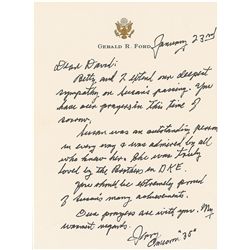 GERALD R. FORD
January 23rd
Dear David:
Betty and I extend our deepest
sympathy on Susan's passing. You
have our prayers in this time of
sorrow.
Susan was an outstanding person
in every way & was admired by all
who knew her. She was truly
loved by the Brothers in DKE.
You should be extremely proud
of Susan's many achievements.
Our prayers are with you. My
warmest regards,
Jerry
"35"